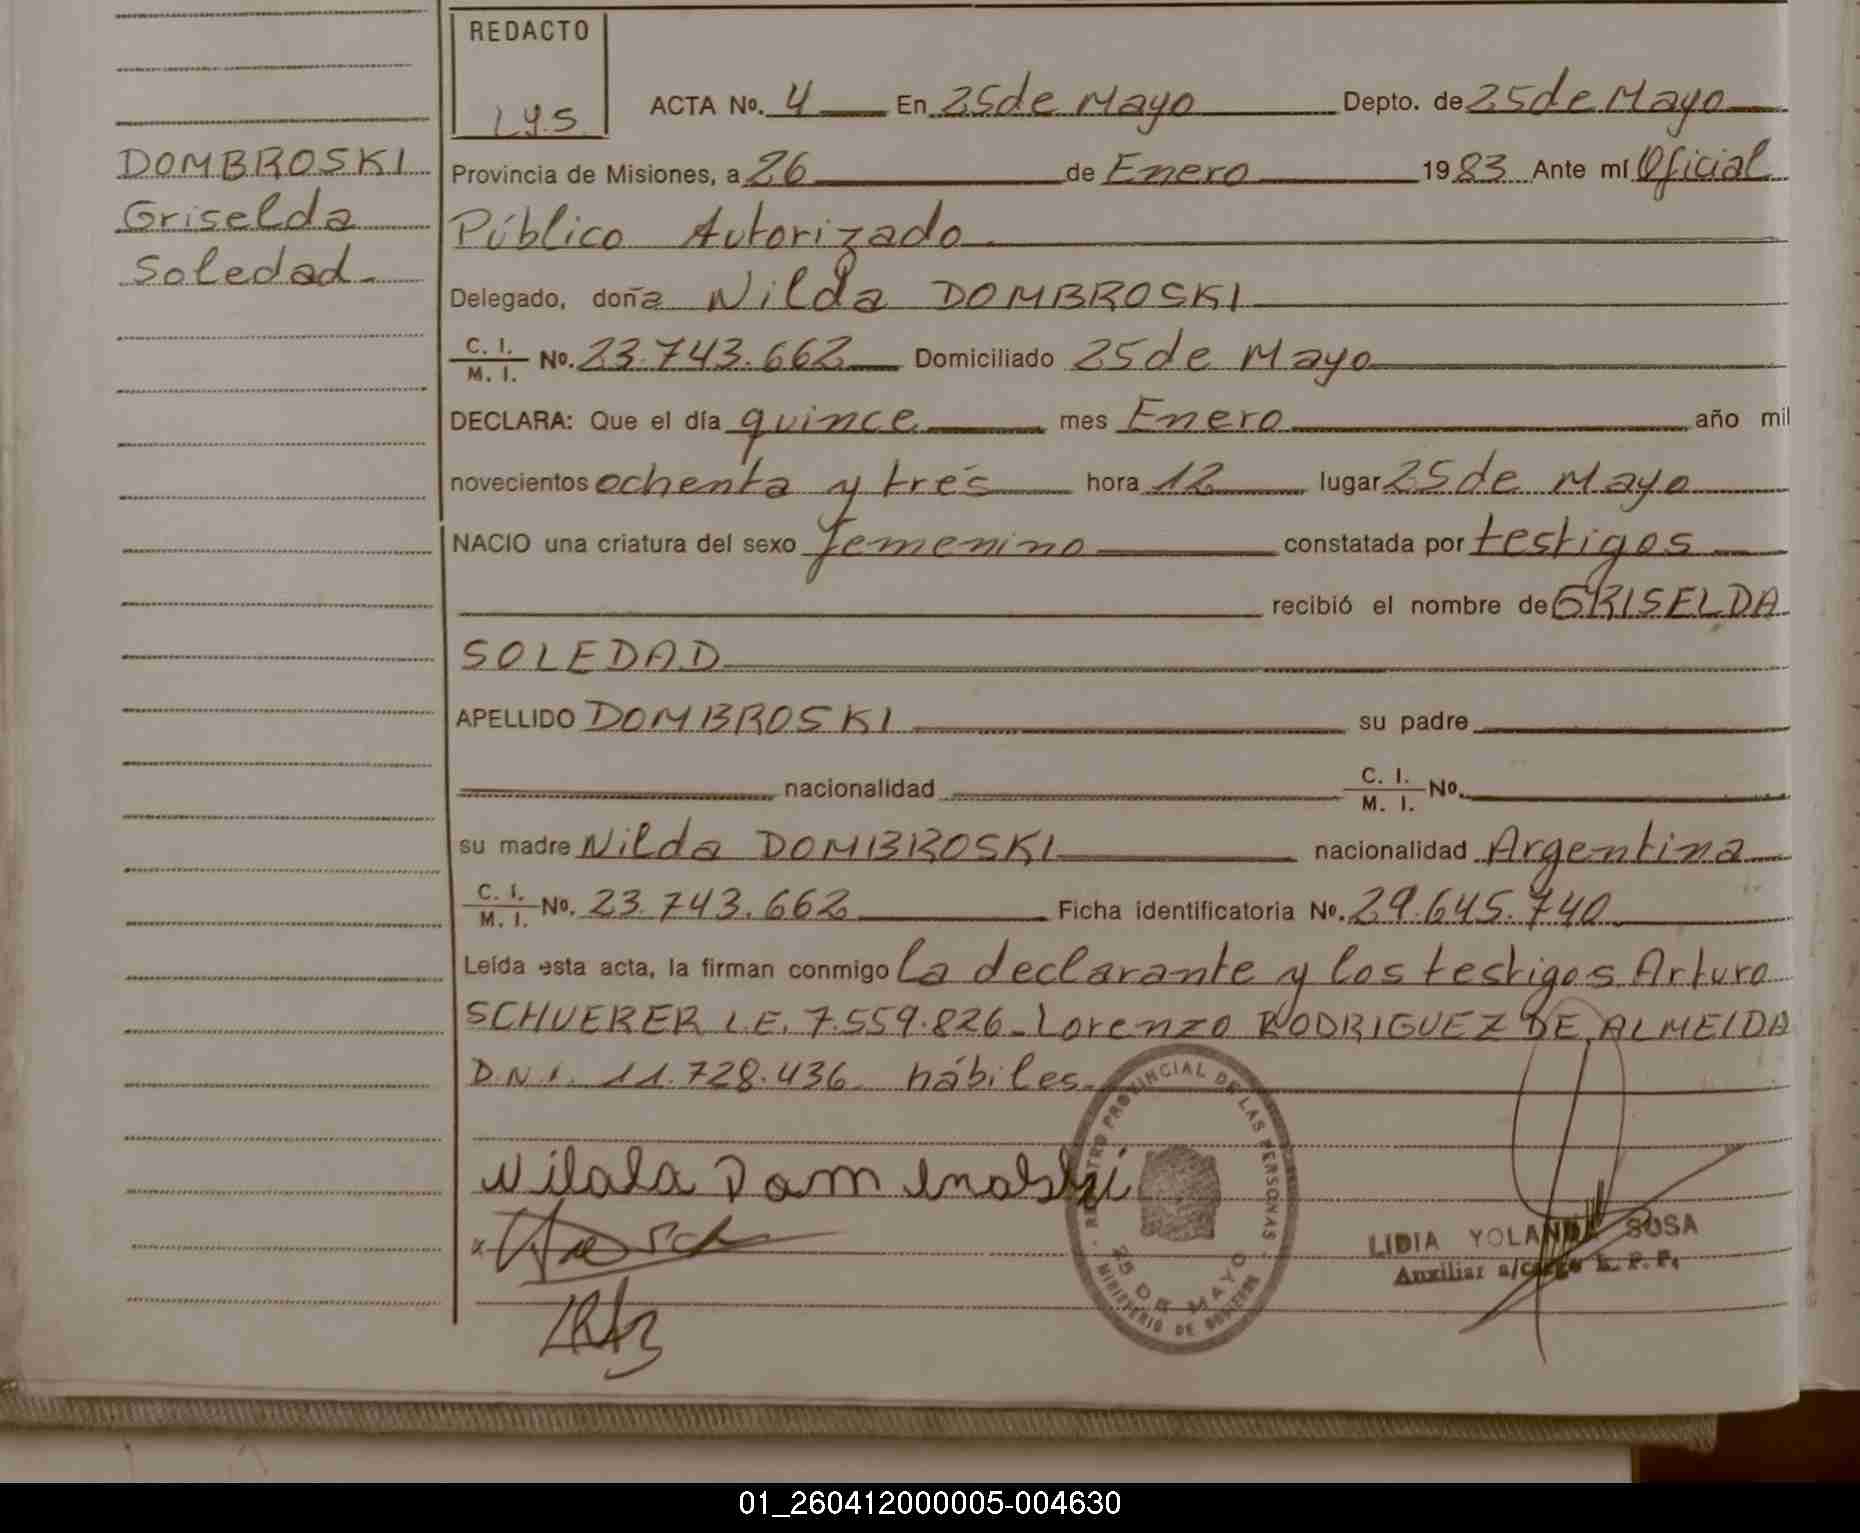 REDACTO
L.y.S.
ACTA No. 4 En 25 de Mayo Depto. de 25 de Mayo
DOMBROSKI
Griselda
Soledad.
Provincia de Misiones, a 26 de Enero 1983 Ante mí Oficial
Público Autorizado.
Delegado, doña Nilda DOMBROSKI
C. I. / M. I. No. 23.743.662 Domiciliado 25 de Mayo
DECLARA: Que el día quince mes Enero año mil
novecientos ochenta y trés hora 12 lugar 25 de Mayo
NACIO una criatura del sexo femenino constatada por testigos
recibió el nombre de GRISELDA
SOLEDAD
APELLIDO DOMBROSKI su padre
nacionalidad C. I. / M. I. No.
su madre Nilda DOMBROSKI nacionalidad Argentina
C. I. / M. I. No. 23.743.662 Ficha identificatoria No. 29.645.740
Leída esta acta, la firman conmigo la declarante y los testigos Arturo
SCHUERER L.E. 7.559.826. Lorenzo RODRIGUEZ DE ALMEIDA
D.N.I. 11.728.436 hábiles.
REGISTRO PROVINCIAL DE LAS PERSONAS
25 DE MAYO
MINISTERIO DE GOBIERNO
LIDIA YOLANDA SOSA
Auxiliar a/cargo R. P. P.
01_260412000005-004630